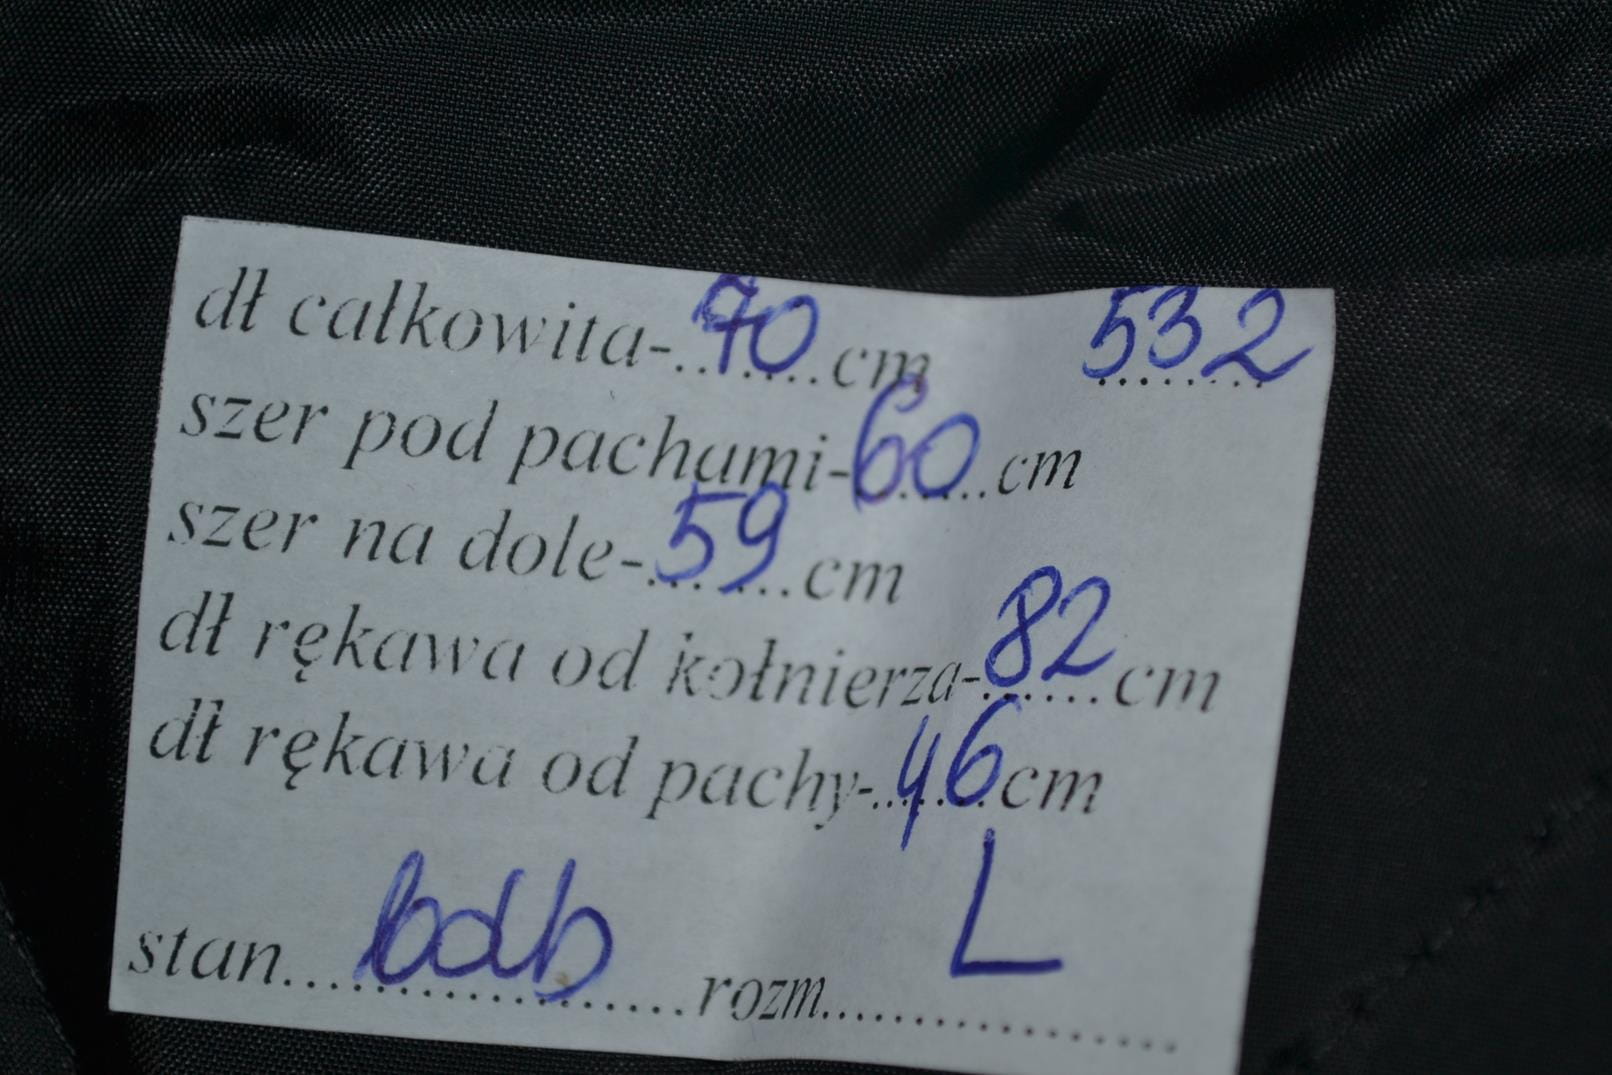 dł całkowita-.70.cm 532
szer pod pachami-60..cm
szer na dole-.59.cm
dł rękawa od kołnierza-82cm
dł rękawa od pachy-.46cm
stan...bdb....rozm....L....